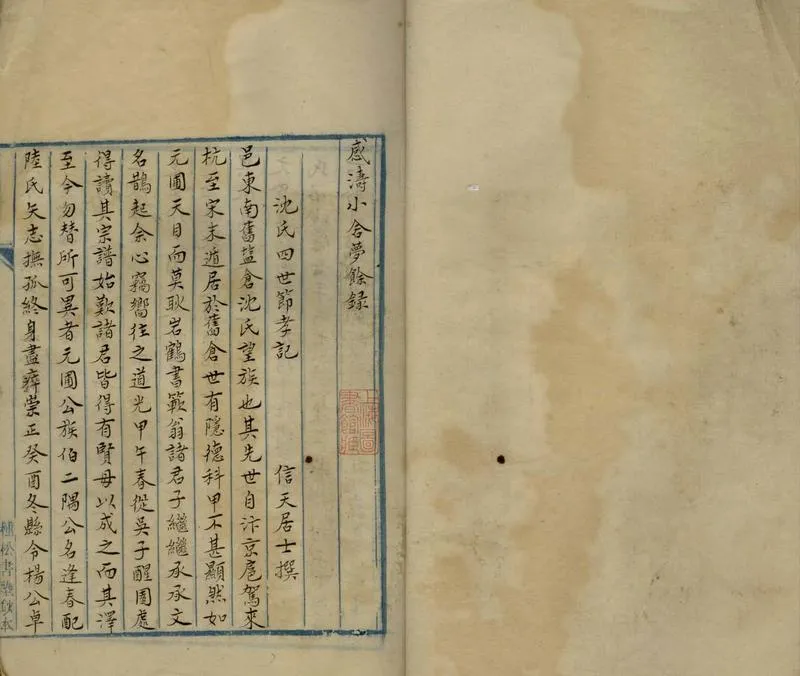 感濤小舍夢餘録
沈氏四世節孝記 信天居士撰
邑東南舊鹽倉沈氏望族也其先世自汴京扈駕來
杭至宋末遁居於舊倉世有隱德科甲不甚顯然如
元圃天目而莫耿岩鶴書範翁諸君子繼繼承承文
名鵲起余心竊嚮往之道光甲午春從吳子醒園處
得讀其宗譜始歎諸君皆得有賢母以成之而其澤
至今勿替所可異者元圃公族伯二隅公名逢春配
陸氏矢志撫孤終身盡瘁崇正癸酉冬縣令楊公卓
上海圖書館藏
種松書塾鈔本